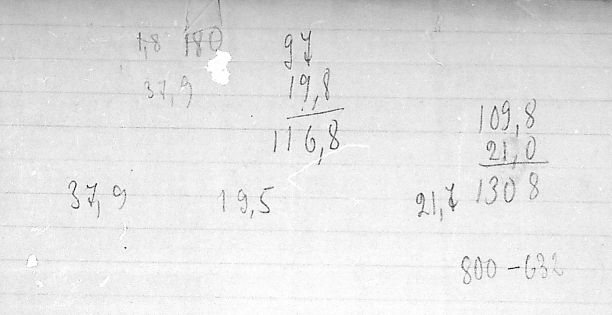 1,8 180 97
37,9 19,8
116,8
109,8
21,0
37,9 19,5 21,7 130 8
800 - 632